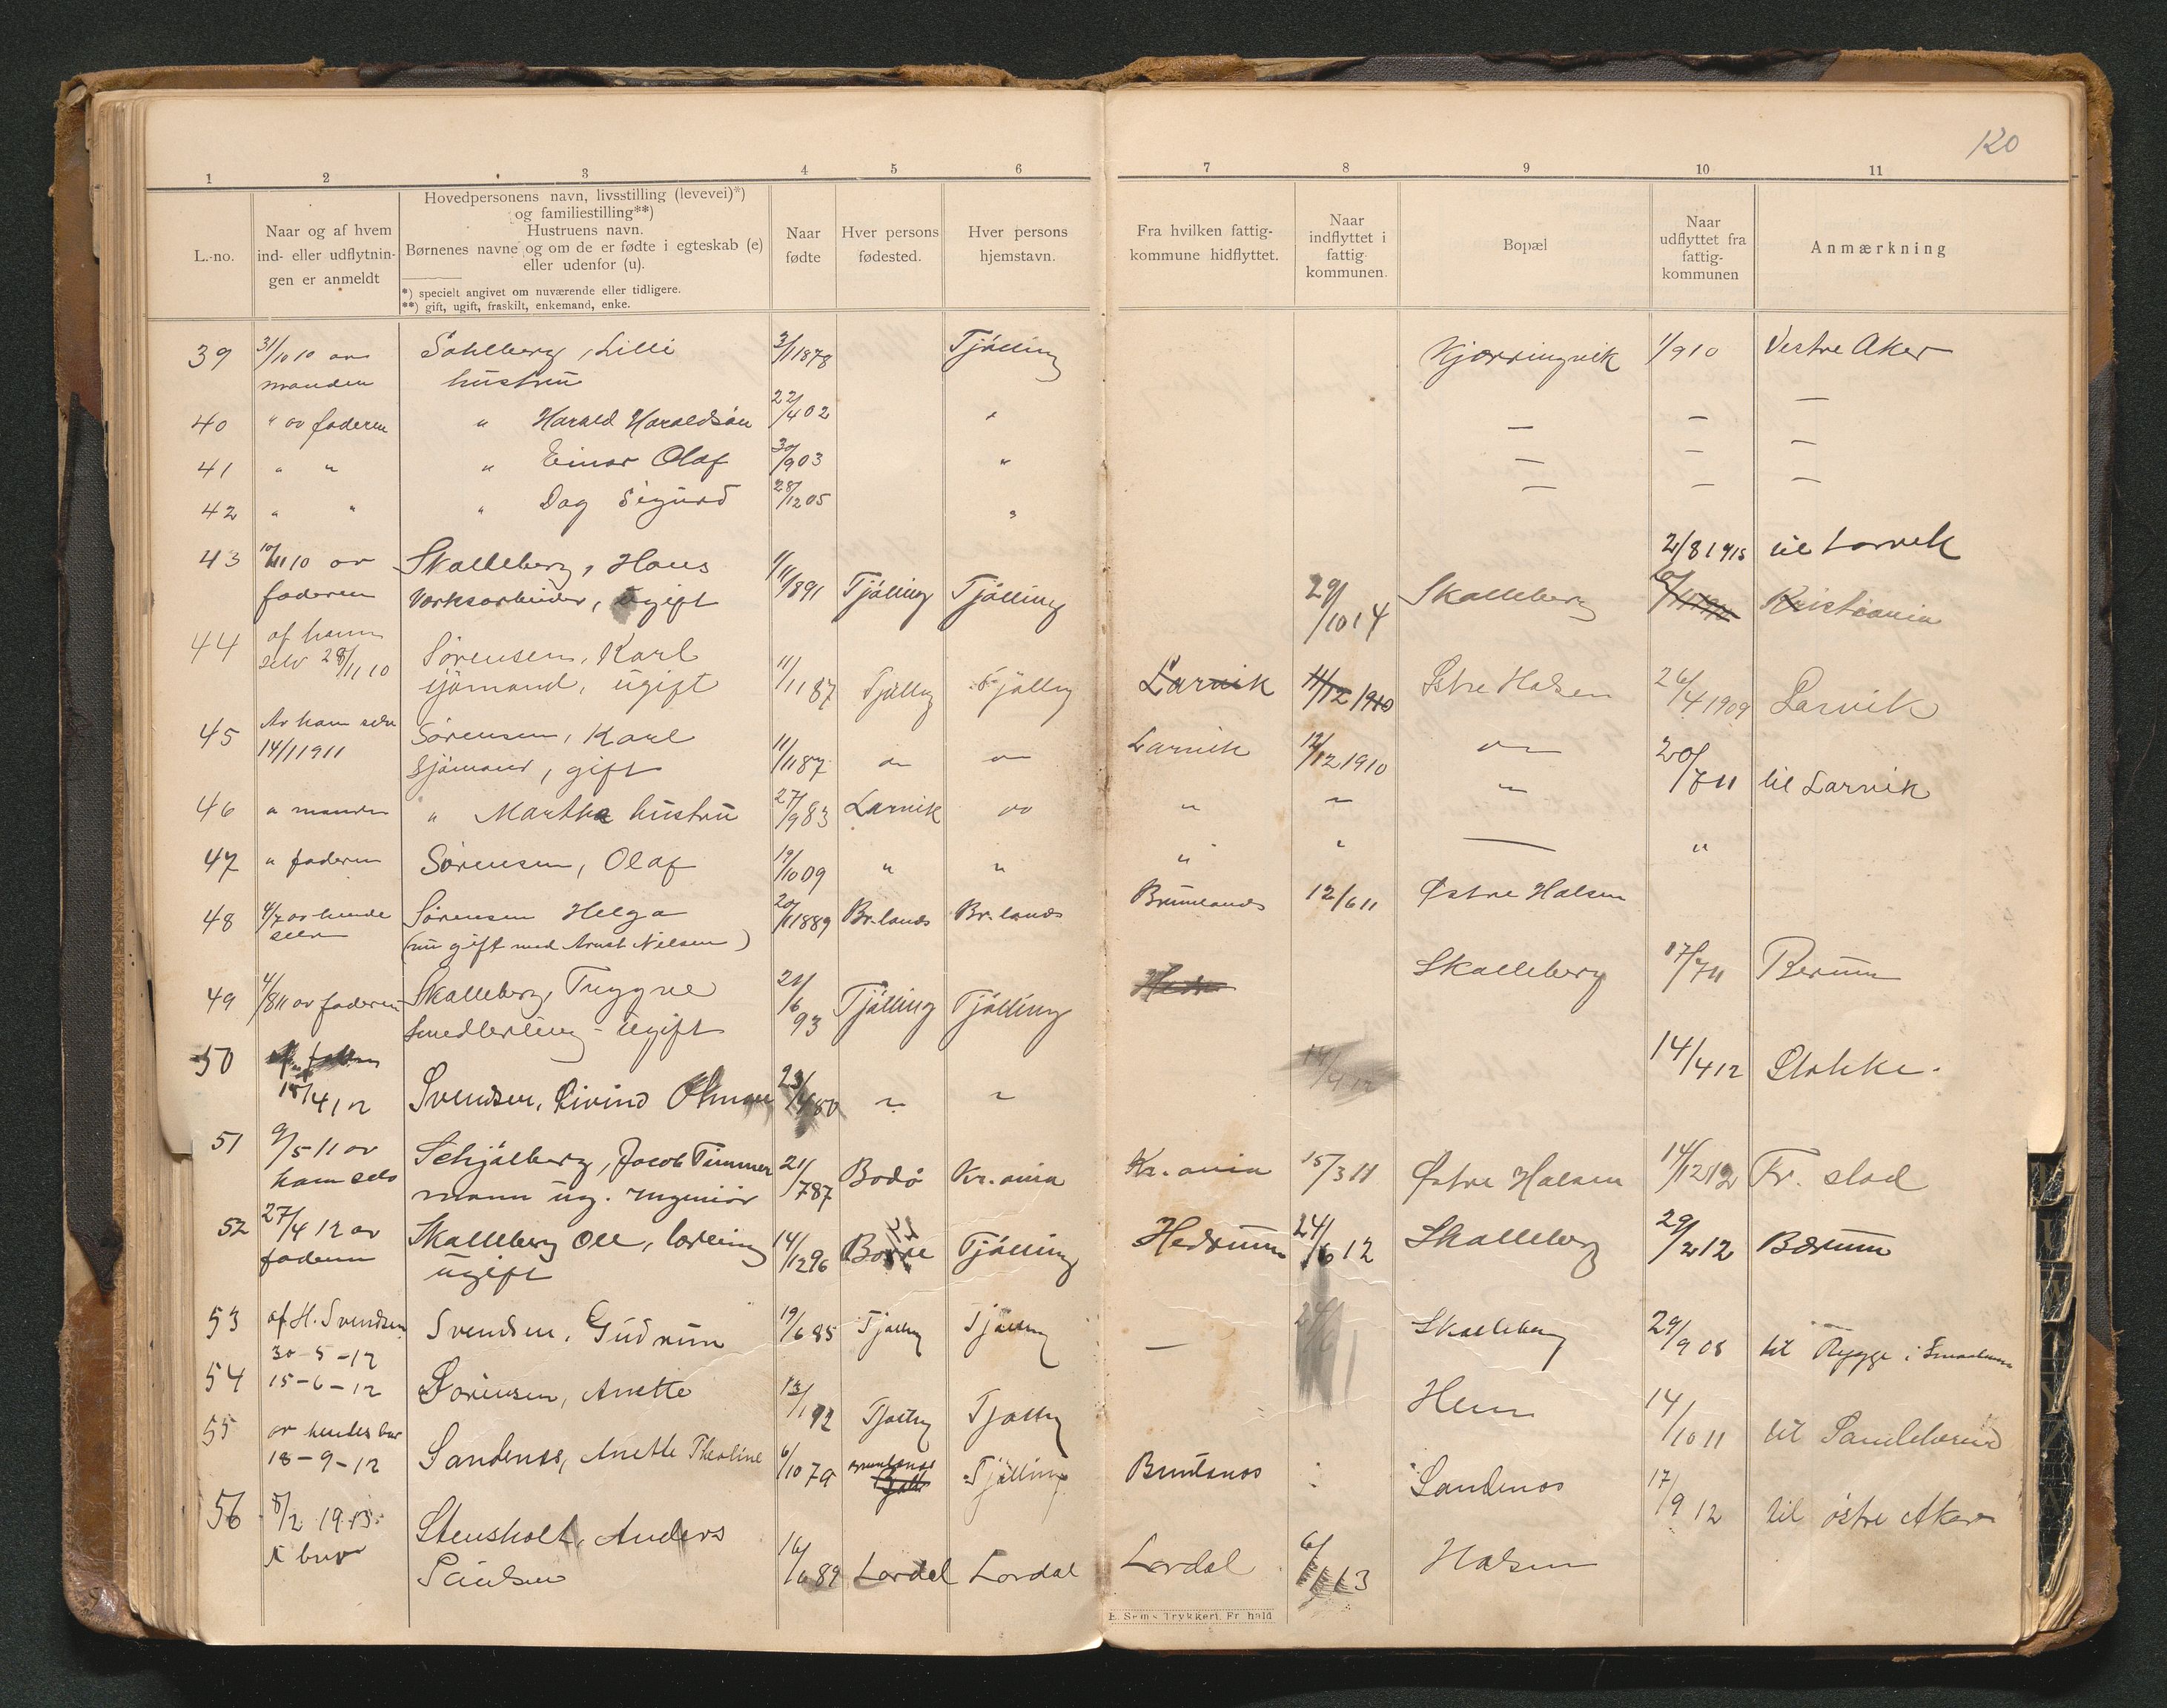 120
1 2 3 4 5 6 7 8 9 10 11
L.-no.
Naar og af hvem
ind- eller udflytnin-
gen er anmeldt
Hovedpersonens navn, livsstilling (levevei)*)
og familiestilling**)
Hustruens navn.
Børnenes navne og om de er fødte i egteskab (e)
eller udenfor (u).
*) specielt angivet om nuværende eller tidligere.
**) gift, ugift, fraskilt, enkemand, enke.
Naar
fødte
Hver persons
fødested.
Hver persons
hjemstavn.
Fra hvilken fattig-
kommune hidflyttet.
Naar
indflyttet i
fattig-
kommunen.
Bopæl
Naar
udflyttet fra
fattig-
kommunen
Anmærkning
39 31/10 10 av Sohlberg, Lilli 3/1 1878 Tjølling Kjærringvik 1/910 Vestre Aker
manden hustru
40 " av faderen " Harald Haraldsøn 22/4 02 " — — —
41 " " " Einar Olaf 30/9 03 " — — —
42 " " " Dag Sigurd 28/12 05 " — — —
43 10/11 10 av Skalleberg, Hans 1/11 1891 Tjølling Tjølling 29/10 14 Skalleberg 2/8 1915 til Larvik
faderen Verksarbeider, ugift Kristiania
44 af ham Sørensen, Karl 11/11 87 Tjølling Tjølling Larvik 11/12 1910 Østre Halsen 26/4 1909 Larvik
selv 28/11 10 sjømand, ugift
45 Av ham selv Sørensen, Karl 11/11 87 Larvik 12/12 1910 20/7 11 til Larvik
14/1 1911 Sjømand, gift
46 " manden " Martha hustru 27/9 83 Larvik " " "
47 " faderen Sørensen, Olaf 19/10 09 " " " " — "
48 4/7 av hende Sørensen Helga 20/11 1889 Br.lanes Br.lanes Brunlanes 12/6 11 Østre Halsen
selv (nu gift med Arnst Nilsen)
49 4/8 11 av faderen Skalleberg, Tryggve 21/6 93 Tjølling Tjølling Skalleberg 17/7 11 Berum
Smedlerling - ugift
50 15/4 12 Svendsen, Eivind 23/4 80 " " 14/4 12 14/4 12 Stokke.
51 9/5 11 av Schjølberg, Jacob Timmer 21/7 87 Bodø Kr.ania Kr.ania 15/3 11 Østre Halsen 14/12 12 Fr. stad
ham selv mann ug. Ingeniør
52 27/4 12 av Skalleberg Ole, lærling 14/12 96 Borre Tjølling Hedrum 24/6 12 Skalleberg 29/2 12 Bærum
faderen ugift
53 af H. Svendsen Svendsen, Gudrun 19/6 85 Tjølling Tjølling — Skalleberg 29/9 08 til Rygge i Smaalenene
30-5-12
54 15-6-12 Sørensen, Anette 13/1 92 Tjølling Tjølling Hem 14/10 11 til Sandeherred
55 av hendes bror
18-9-12 Sandenes, Anette Theoline 6/10 79 Brunlanes Tjølling Brunlanes Sandenes 17/9 12 til østre Aker
56 8/2 1913 Stensholt, Anders 16/6 89 Lardal Lardal Lardal 6/1 13 Halsen
i brev Paulsen
E. Sem's Trykkeri, Fr.hald